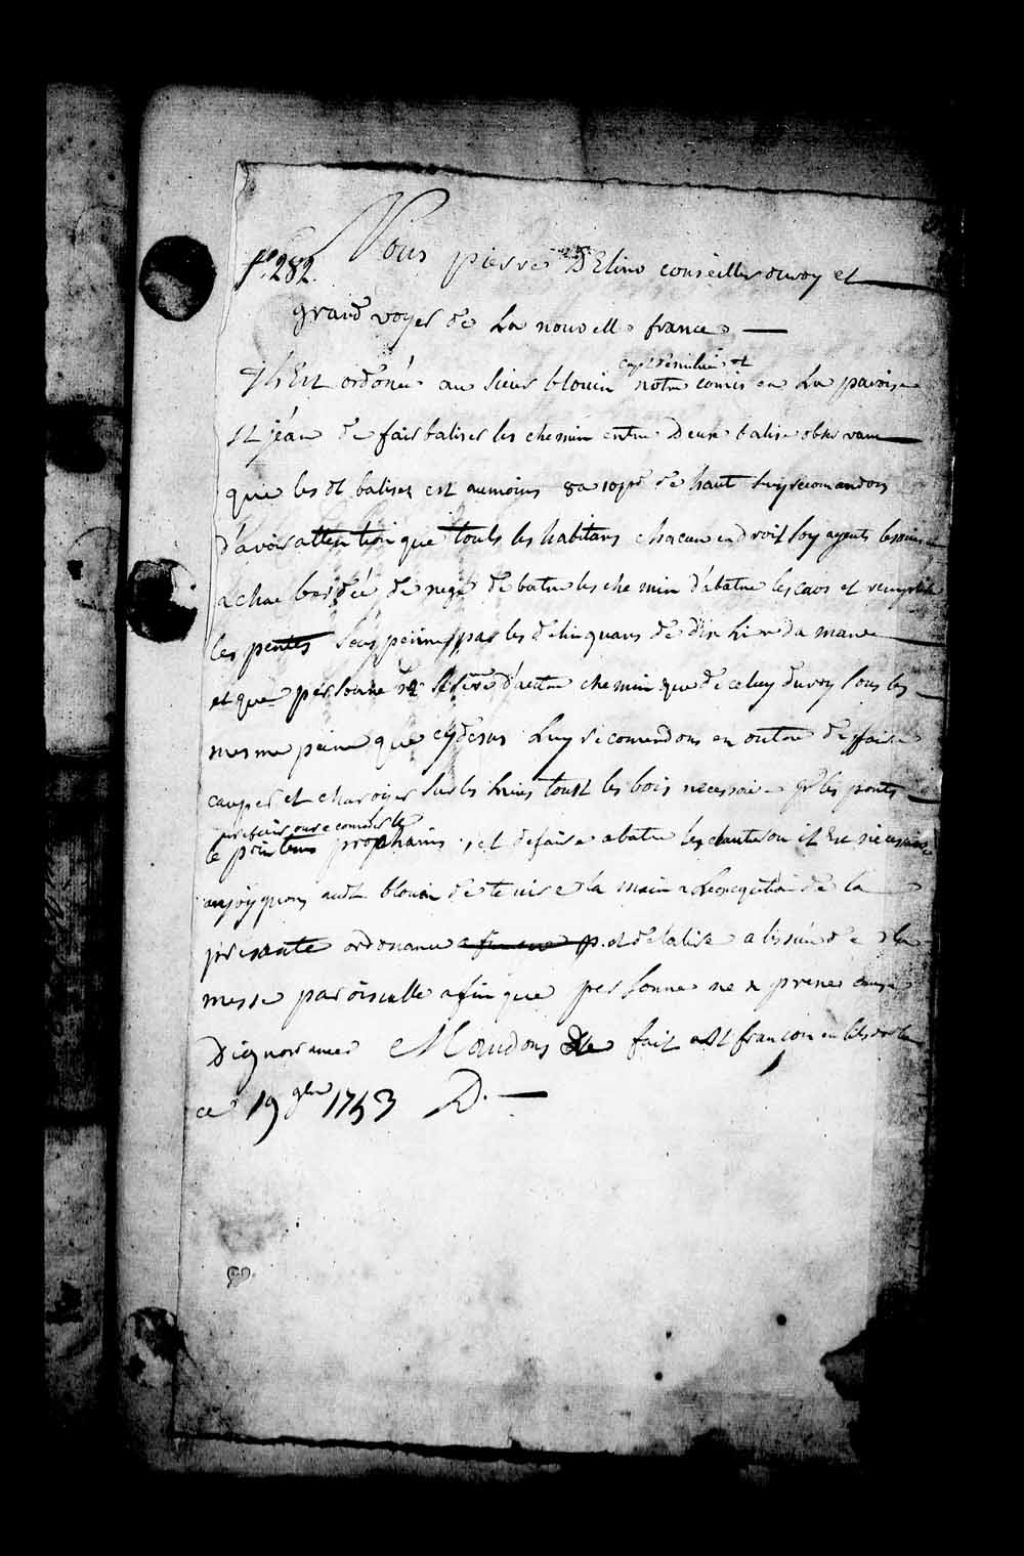 fo. 282.
Nous pierre DElino conseiller du roy et
grand voyer de La nouvelle france
Il Est ordoné au sieur blouin capt de milice et notre comis en La paroisse
St jéan de fair baliser les chemin entre Deux balise observant
que les dt balises est aumoins 8 a 10 pd de haut luy recomandons
d'avoir attention que touts les habitans chacun endroit soy ayents le soins
a chac bordéé de nege de batre les chemin d'abatre les caos et remplire
les pentes sous peinne par les delinquans de dix Livre da mande
et que personne ne se serve d'autre chemin que de celuy du roy sous les
mesme peine que cy desus Luy recomendons en outre de faire
couper et charoyer sur les lieux toust les bois necessaire pr les ponts
a refair ou recomoder le
le printems prophains, et de faire abatre les chauts ou il Est nécessaire
anjoygnons audt blouin de tenire la main a Lexeqution de la
présante ordonance et de la lire a lissüe de la
messe paroisialle afin que personne ne n prene cause
D'ignorance Mandons &c fait a St françois
ce 19 9bre 1753 D.